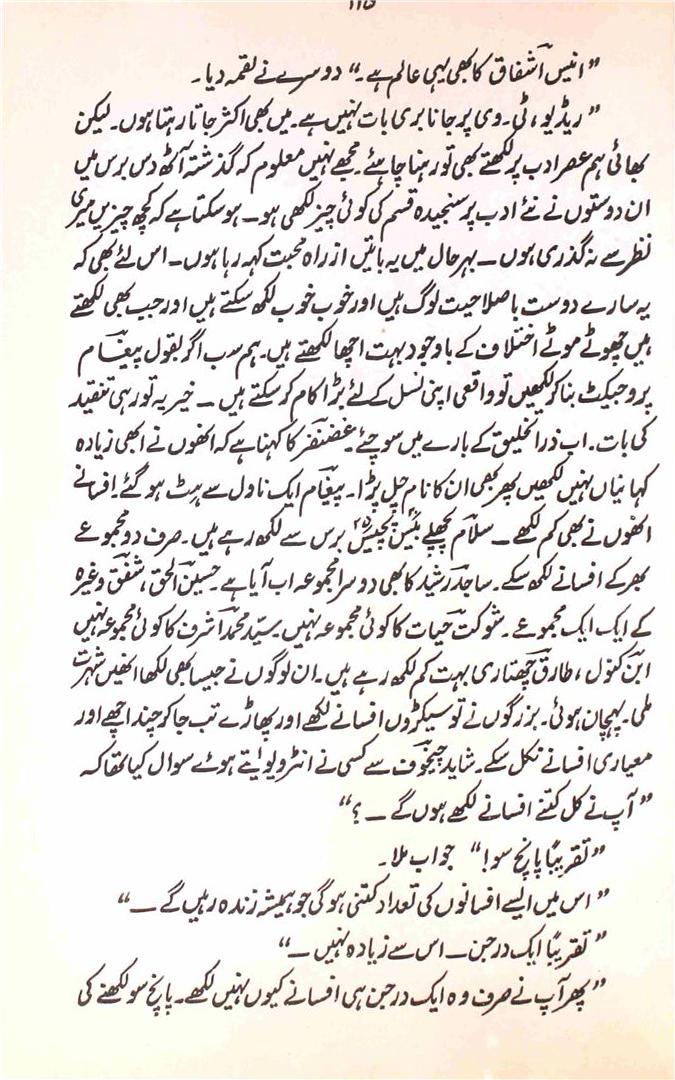 ”انیس اشفاق کا بھی یہی عالم ہے۔“ دوسرے نے لقمہ دیا۔
”ریڈیو، ٹی۔وی پر جانا بری بات نہیں ہے۔ میں بھی اکثر جاتا رہتا ہوں۔ لیکن
بھائی ہم عصر ادب پر لکھتے بھی تو رہنا چاہئے۔ مجھے نہیں معلوم کہ گذشتہ آٹھ دس برس میں
ان دوستوں نے نئے ادب پر سنجیدہ قسم کی کوئی چیز لکھی ہو۔ ہو سکتا ہے کہ کچھ چیزیں میری
نظر سے نہ گذری ہوں۔ بہر حال میں یہ باتیں از راہ محبت کہہ رہا ہوں۔ اس لئے بھی کہ
یہ سارے دوست با صلاحیت لوگ ہیں اور خوب خوب لکھ سکتے ہیں اور جب بھی لکھتے
ہیں چھوٹے موٹے اختلاف کے باوجود بہت اچھا لکھتے ہیں۔ ہم سب اگر بقول پیغام
پروجیکٹ بنا کر لکھیں تو واقعی اپنی نسل کے لئے بڑا کام کر سکتے ہیں۔ خیر یہ تو رہی تنقید
کی بات۔ اب ذرا تخلیق کے بارے میں سوچئے۔ غضنفر کا کہنا ہے کہ انھوں نے ابھی زیادہ
کہانیاں نہیں لکھیں پھر بھی ان کا نام چل پڑا۔ پیغام ایک ناول سے ہٹ ہو گئے۔ افسانے
انھوں نے بھی کم لکھے۔ سلام پچھلے بیس پچیس ۲۵ برس سے لکھ رہے ہیں۔ صرف دو مجموعے
بھر کے افسانے لکھ سکے۔ ساجد رشید کا بھی دوسرا مجموعہ اب آیا ہے۔ حسین الحق، شفق وغیرہ
کے ایک ایک مجموعے۔ شوکت حیات کا کوئی مجموعہ نہیں۔ سیّد محمد اشرف کا کوئی مجموعہ نہیں
ابن کنول، طارق چھتاری بہت کم لکھ رہے ہیں۔ ان لوگوں نے جیسا بھی لکھا انھیں شہرت
ملی۔ پہچان ہوئی۔ بزرگوں نے تو سیکڑوں افسانے لکھے اور پھاڑے تب جا کر چند اچھے اور
معیاری افسانے نکل سکے۔ شاید چیخوف سے کسی نے انٹرویو لیتے ہوئے سوال کیا تھا کہ
”آپ نے کل کتنے افسانے لکھے ہوں گے۔؟“
”تقریباً پانچ سو!“ جواب ملا۔
”اس میں ایسے افسانوں کی تعداد کتنی ہوگی جو ہمیشہ زندہ رہیں گے۔“
”تقریباً ایک درجن۔ اس سے زیادہ نہیں۔“
”پھر آپ نے صرف وہ ایک درجن ہی افسانے کیوں نہیں لکھے۔ پانچ سو لکھنے کی